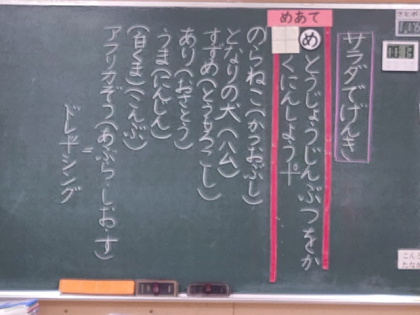 サラダでげんき
めあて
め とうじょうじんぶつをか
くにんしよう。
のらねこ(かつおぶし)
となりの犬(ハム)
すずめ(とうもろこし)
あり(おさとう)
うま(にんじん)
(白くま)(こんぶ)
アフリカぞう(あぶら・しお・す)
ドレッシング